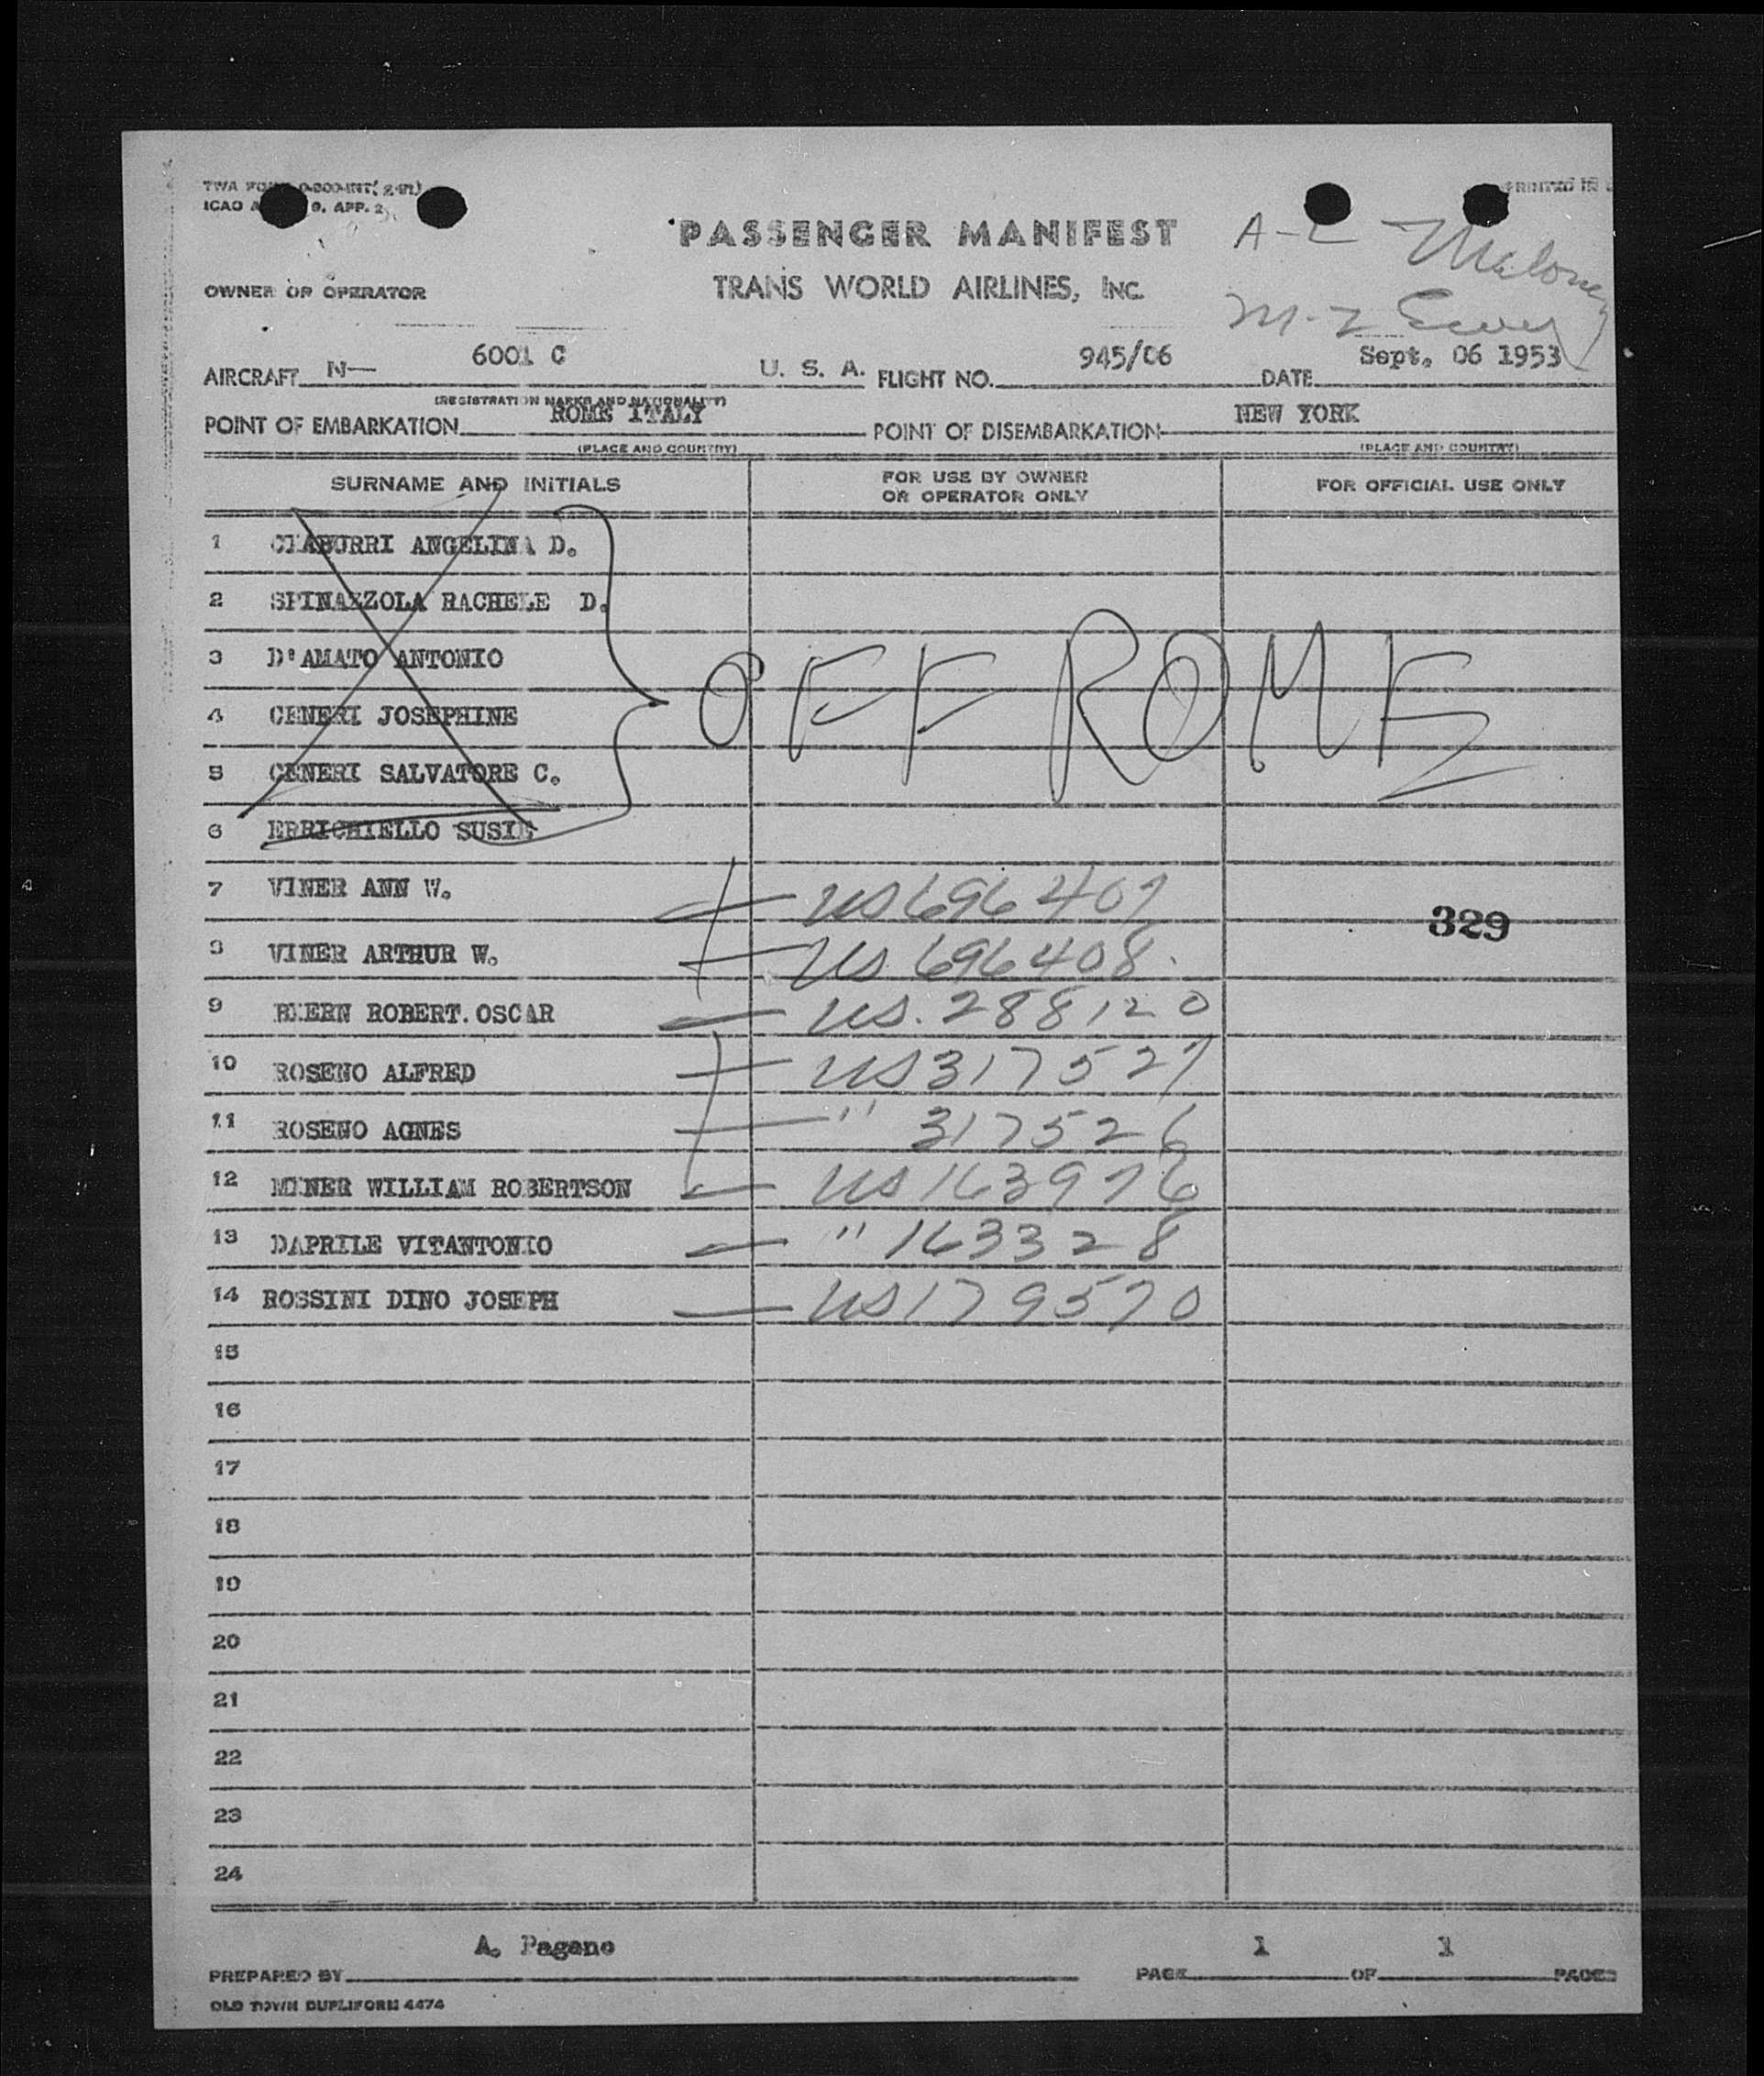 TWA FORM 0-800-INT( 2-51)
ICAO 9, APP. 2
PRINTED IN
PASSENGER MANIFEST
A-L Maloney
OWNER OR OPERATOR
TRANS WORLD AIRLINES, INC.
M-Z
AIRCRAFT N— 6001 C U. S. A. FLIGHT NO. 945/06 DATE Sept. 06 1953
(REGISTRATION MARKS AND NATIONALITY)
POINT OF EMBARKATION ROME ITALY POINT OF DISEMBARKATION NEW YORK
(PLACE AND COUNTRY) (PLACE AND COUNTRY)
SURNAME AND INITIALS FOR USE BY OWNER OR OPERATOR ONLY FOR OFFICIAL USE ONLY
1 CIABURRI ANGELINA D.
2 SPINAZZOLA RACHELE D.
3 D'AMATO ANTONIO
OFF ROME
4 CENERI JOSEPHINE
5 CENERI SALVATORE C.
6 ERRICHIELLO SUSIE
7 VINER ANN W. US 696407
329
8 VINER ARTHUR W. US 696408
9 ROBERT.OSCAR US. 288120
10 ROSENO ALFRED US 317527
11 ROSENO AGNES " 317526
12 MINER WILLIAM ROBERTSON US 163976
13 DAPRILE VITANTONIO " 163328
14 ROSSINI DINO JOSEPH US 179570
15
16
17
18
19
20
21
22
23
24
PREPARED BY A. Pagano PAGE 1 OF 1 PAGES
OLD TOWN DUPLIFORM 4474